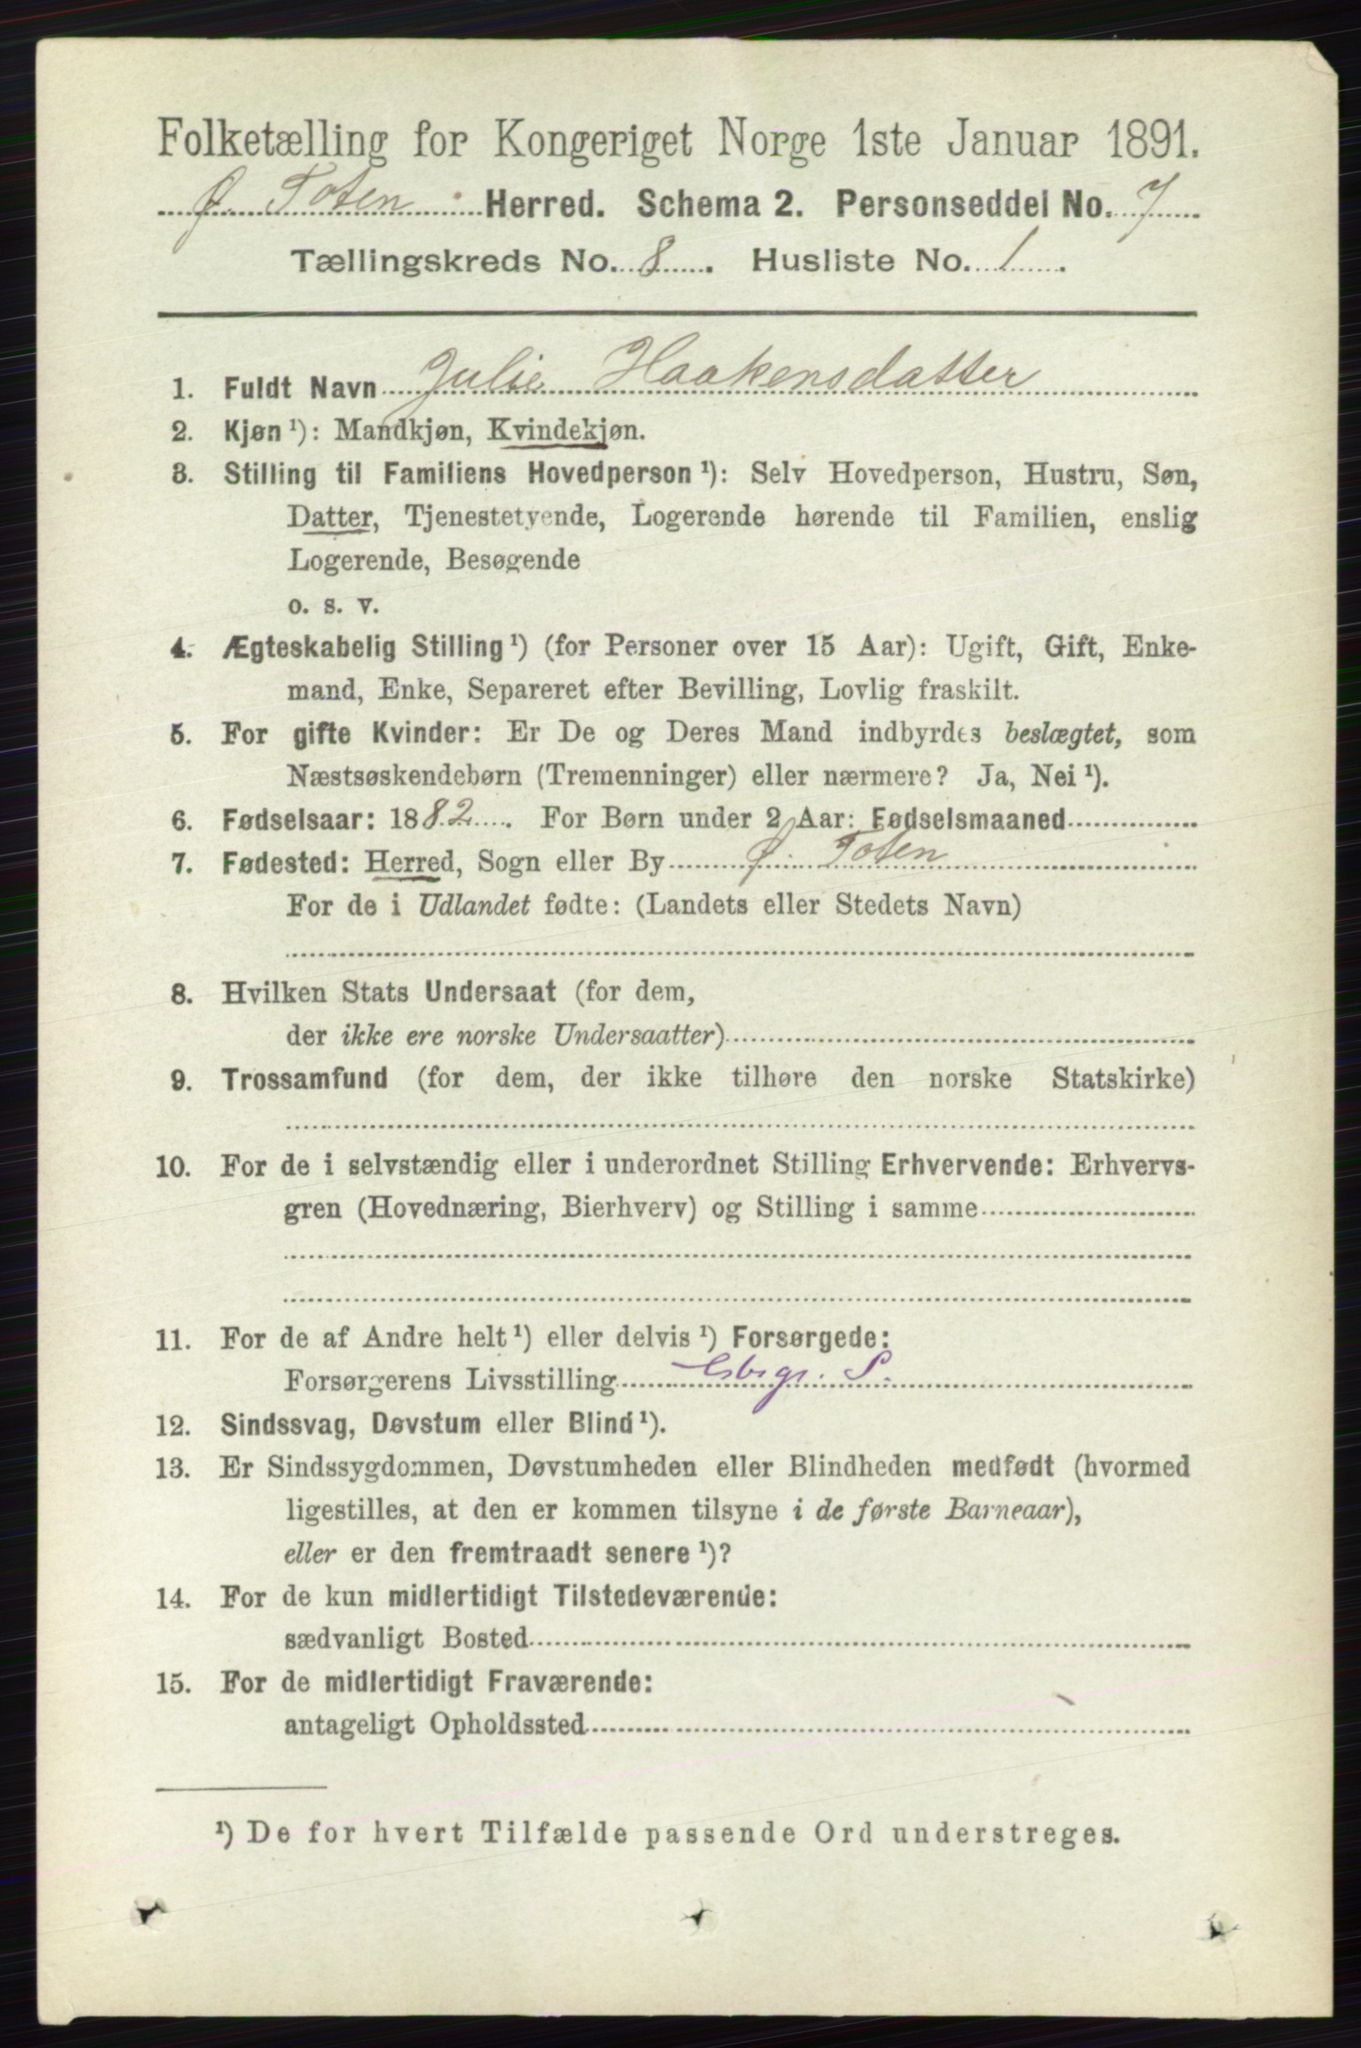 Folketælling for Kongeriget Norge 1ste Januar 1891.
Ø. Toten Herred. Schema 2. Personseddel No. 7
Tællingskreds No. 8. Husliste No. 1.
1. Fuldt Navn Julie Haakensdatter
2. Kjøn ¹): Mandkjøn, Kvindekjøn.
3. Stilling til Familiens Hovedperson ¹): Selv Hovedperson, Hustru, Søn,
Datter, Tjenestetyende, Logerende hørende til Familien, enslig
Logerende, Besøgende
o. s. v.
4. Ægteskabelig Stilling ¹) (for Personer over 15 Aar): Ugift, Gift, Enke-
mand, Enke, Separeret efter Bevilling, Lovlig fraskilt.
5. For gifte Kvinder: Er De og Deres Mand indbyrdes beslægtet, som
Næstsøskendebørn (Tremenninger) eller nærmere? Ja, Nei ¹).
6. Fødselsaar: 1882. For Børn under 2 Aar: Fødselsmaaned
7. Fødested: Herred, Sogn eller By Ø. Toten
For de i Udlandet fødte: (Landets eller Stedets Navn)
8. Hvilken Stats Undersaat (for dem,
der ikke ere norske Undersaatter)
9. Trossamfund (for dem, der ikke tilhøre den norske Statskirke)
10. For de i selvstændig eller i underordnet Stilling Erhvervende: Erhvervs-
gren (Hovednæring, Bierhverv) og Stilling i samme
11. For de af Andre helt ¹) eller delvis ¹) Forsørgede:
Forsørgerens Livsstilling S.
12. Sindssvag, Døvstum eller Blind ¹).
13. Er Sindssygdommen, Døvstumheden eller Blindheden medfødt (hvormed
ligestilles, at den er kommen tilsyne i de første Barneaar),
eller er den fremtraadt senere ¹)?
14. For de kun midlertidigt Tilstedeværende:
sædvanligt Bosted
15. For de midlertidigt Fraværende:
antageligt Opholdssted
¹) De for hvert Tilfælde passende Ord understreges.